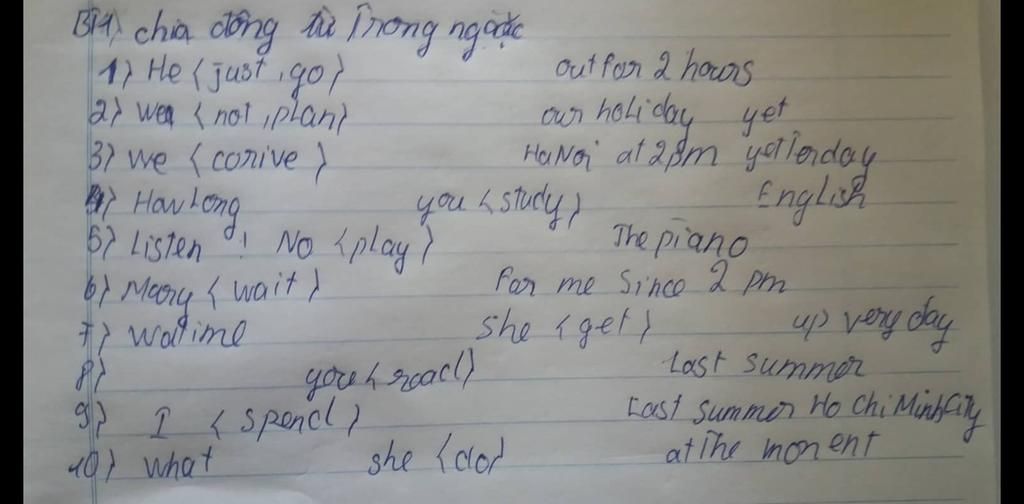 BT1) chia động từ Trong ngoặc
1) He {just, go} out for 2 hours
2) We {not, plan} our holiday yet
3) We {corive} HaNoi at 2pm yesterday
4) How Long you {study} English
5) Listen ! No {play} The piano
6) Mary {wait} for me Since 2 pm
7) Watime she {get} up very day
8) you {read} Last summer
9) I {spend} Last summer Ho Chi Minh City
10) what she {do} at The monent